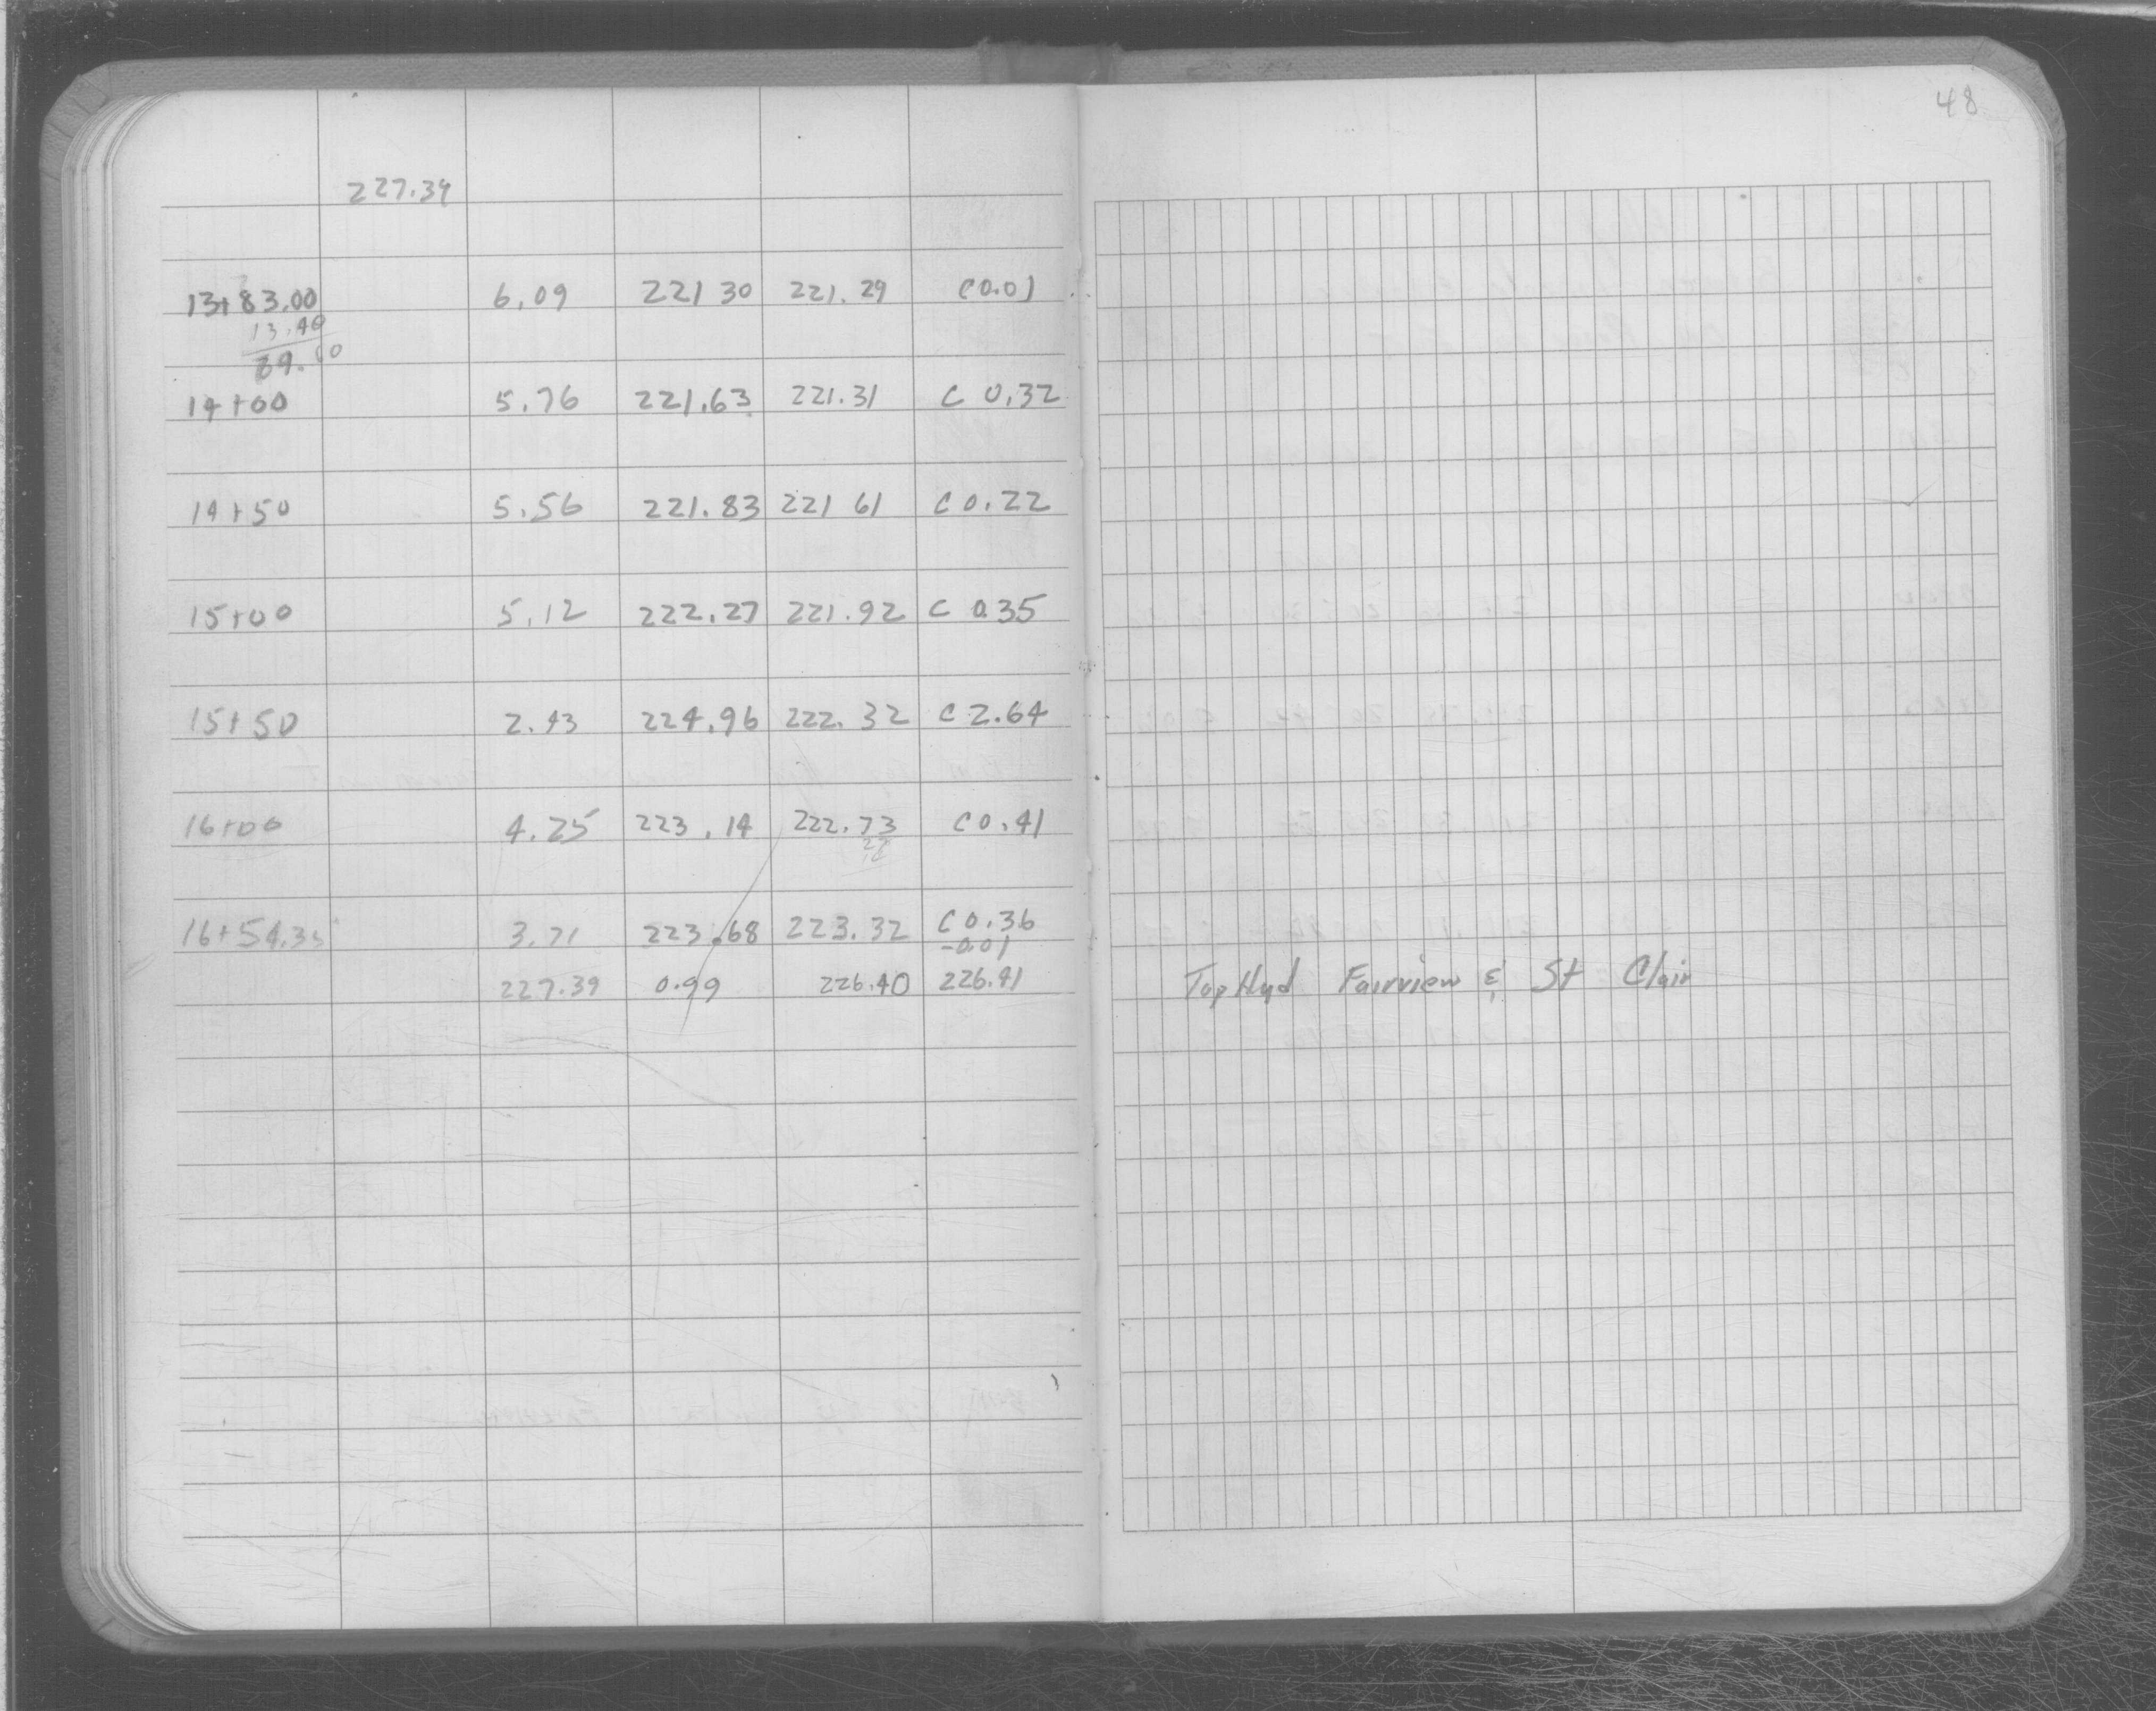 48
227.39
13+83.00 6.09 221 30 221.29 C0.01
13.40
89.60
14+00 5.76 221.63 221.31 C 0.32
14+50 5.56 221.83 221 61 C 0.22
15+00 5.12 222.27 221.92 C 0.35
15+50 2.43 224.96 222.32 C 2.64
16+00 4.25 223.14 222.73 C 0.41
16+54.35 3.71 223.68 223.32 C 0.36
-0.01
227.39 0.99 226.40 226.41 Top Hyd Fairview & St Clair